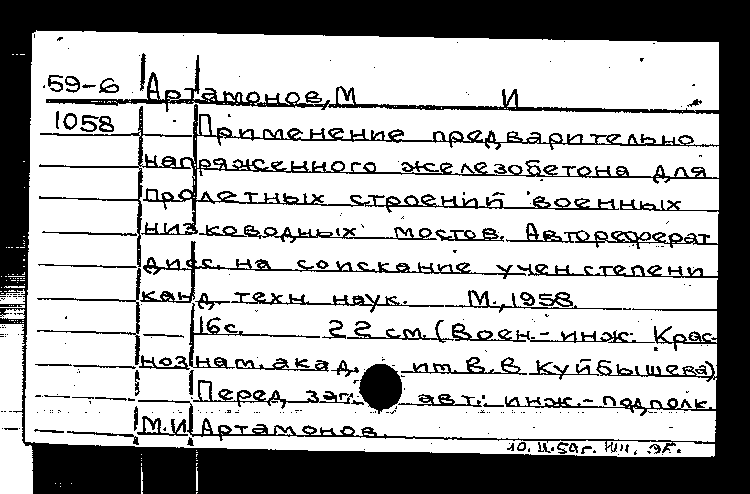 59-6 Артамонов, М И
1058 Применение предварительно
напряженного железобетона для
пролетных строений военных
низководных мостов. Автореферат
дисс. на соискание учен. степени
канд. техн. наук. М., 1958.
16 с. 22 см. (Воен.-инж. Крас-
нознам. акад. им. В. В. Куйбышева)
Перед заг. авт.: инж.-подполк.
М. И. Артамонов.